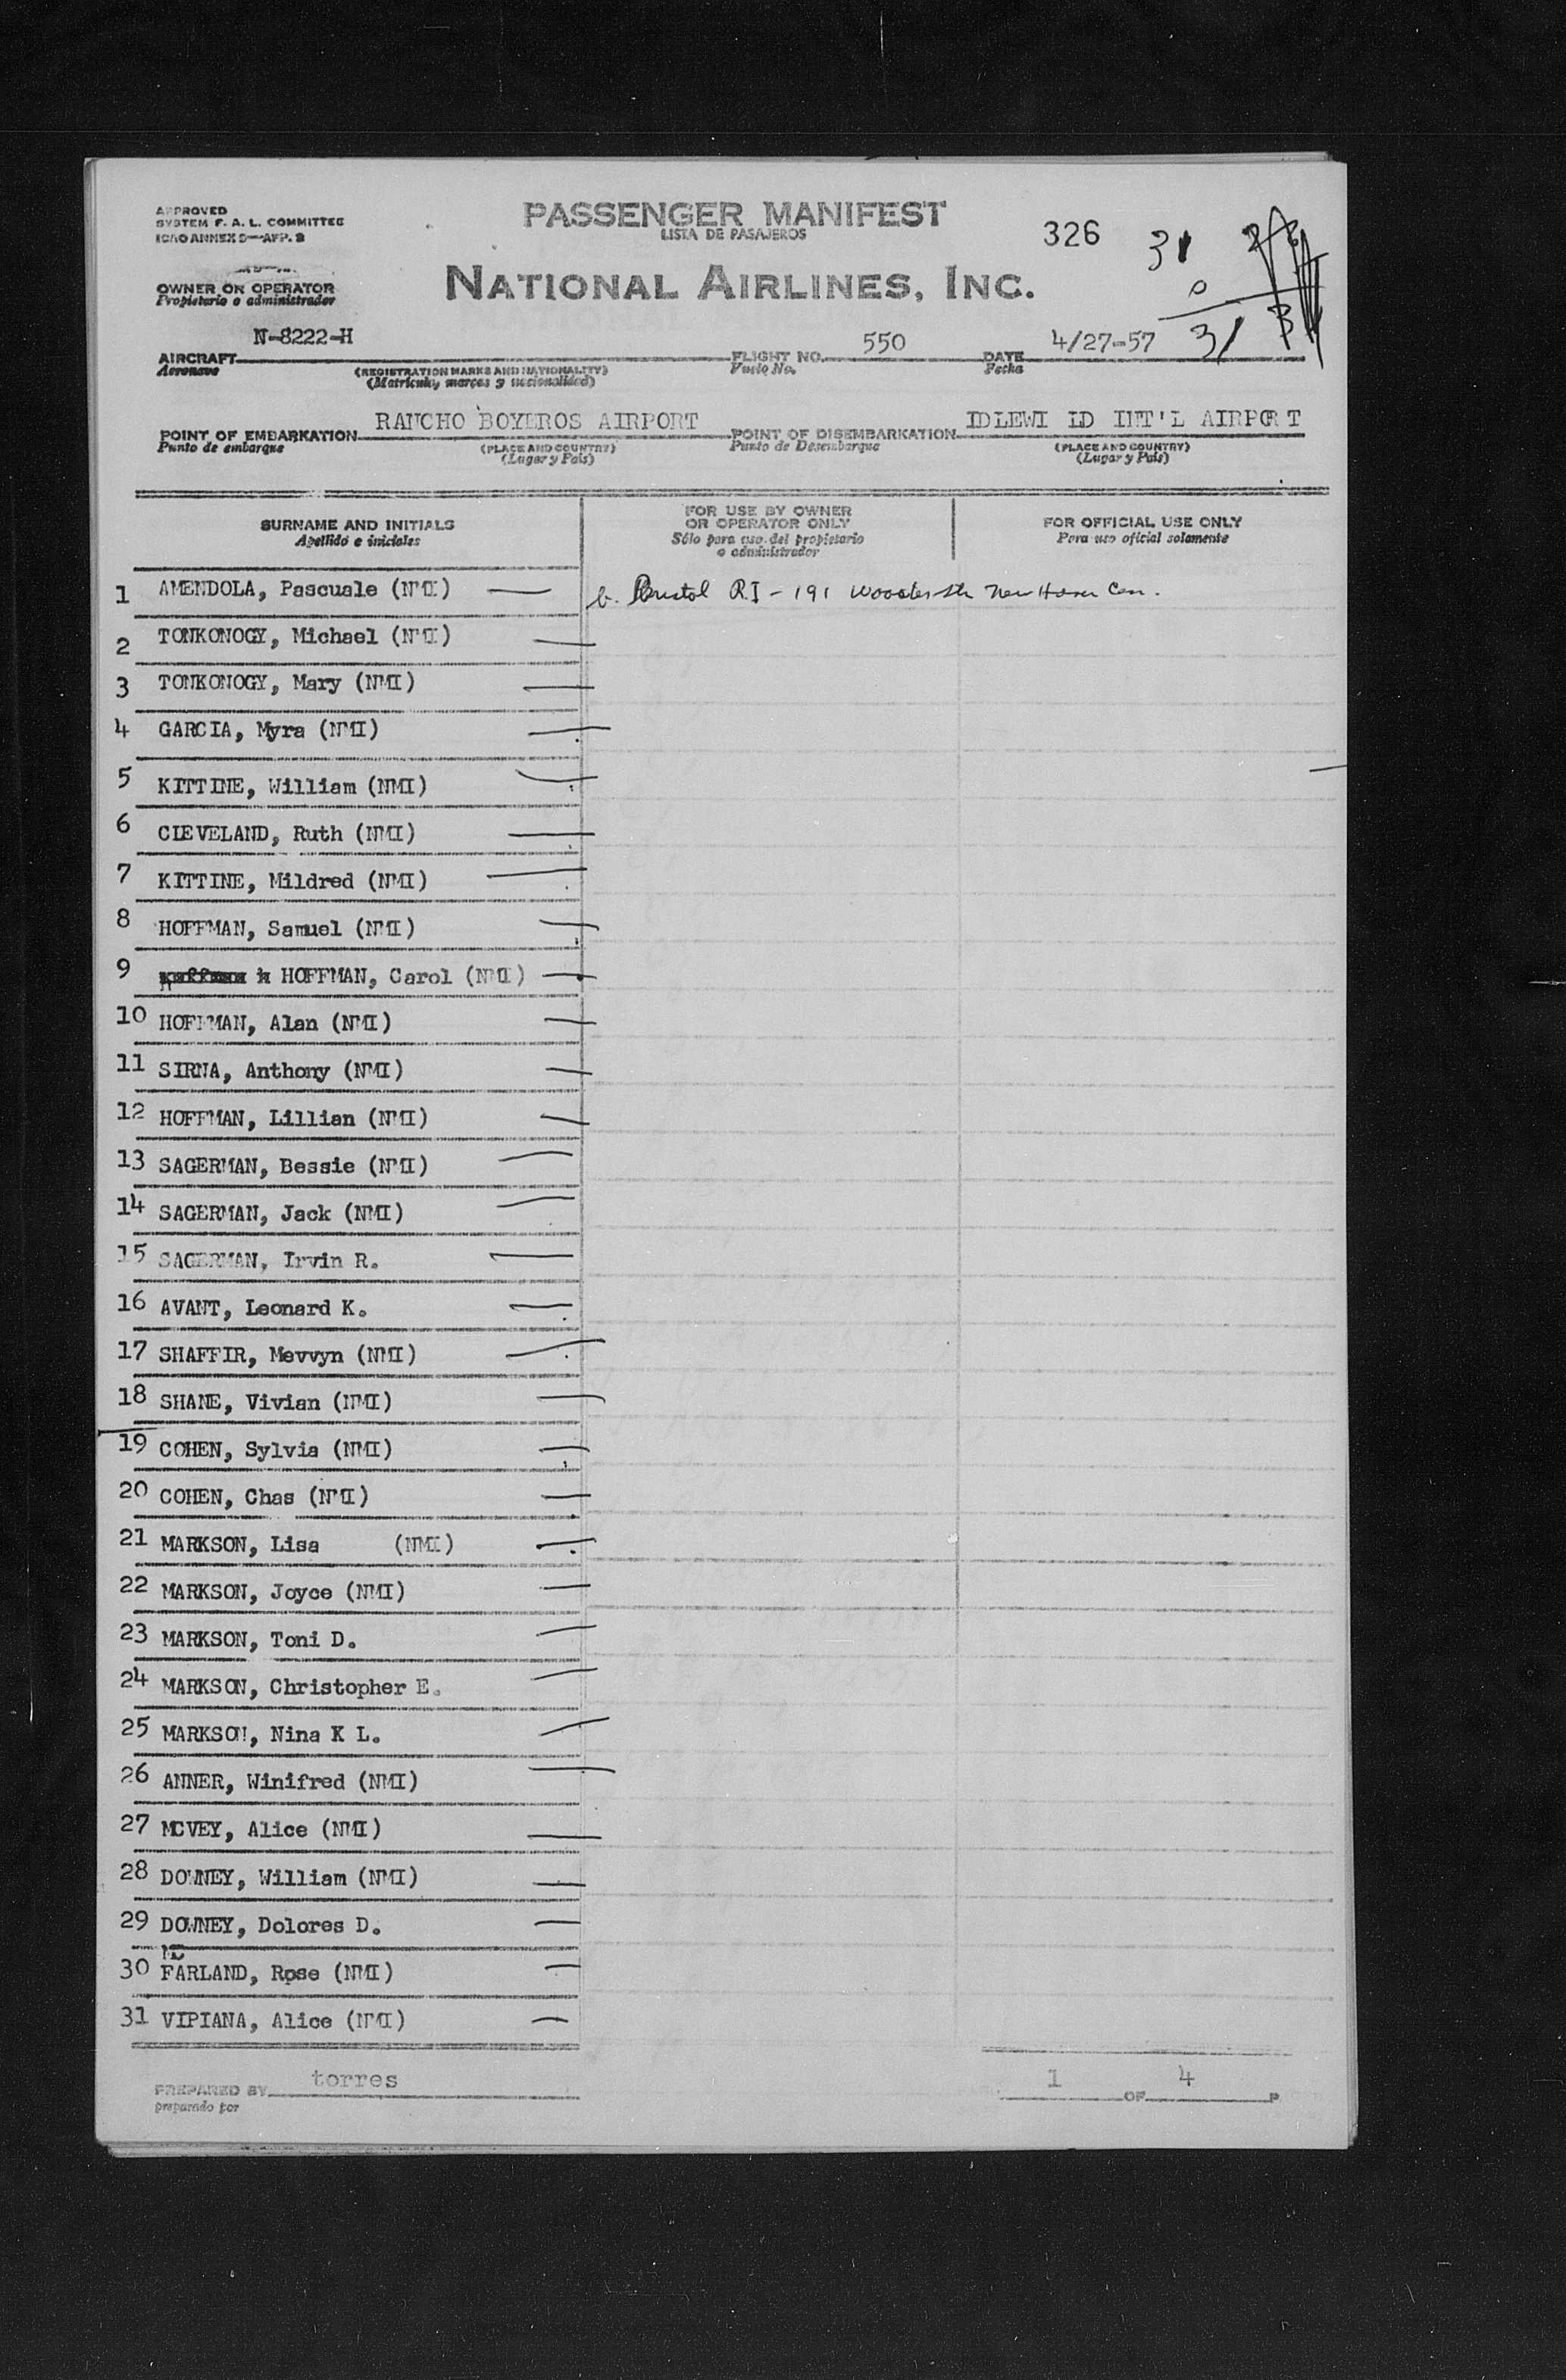 APPROVED
SYSTEM F. A. L. COMMITTEE
ICAO ANNEX 9—APP. 3
PASSENGER MANIFEST
LISTA DE PASAJEROS
326
31
0
31
OWNER OR OPERATOR
Propietario o administrador
NATIONAL AIRLINES, INC.
AIRCRAFT N-8222-H FLIGHT NO. 550 DATE 4/27-57
Aeronave (REGISTRATION MARKS AND NATIONALITY) Vuelo No. Fecha
(Matricula, marcas y nacionalidad)
POINT OF EMBARKATION RANCHO BOYEROS AIRPORT POINT OF DISEMBARKATION IDLEWI LD INT'L AIRPORT
Punto de embarque (PLACE AND COUNTRY) Punto de Desembarque (PLACE AND COUNTRY)
(Lugar y Pais) (Lugar y Pais)
SURNAME AND INITIALS
Apellido e iniciales
FOR USE BY OWNER
OR OPERATOR ONLY
Sólo para uso del propietario
o administrador
FOR OFFICIAL USE ONLY
Para uso oficial solamente
1 AMENDOLA, Pascuale (NMI) b. Bristol R.I - 191 Wooster St New Haven Con.
2 TONKONOGY, Michael (NMI)
3 TONKONOGY, Mary (NMI)
4 GARCIA, Myra (NMI)
5 KITTINE, William (NMI)
6 CLEVELAND, Ruth (NMI)
7 KITTINE, Mildred (NMI)
8 HOFFMAN, Samuel (NMI)
9 HOFFMAN, Carol (NMI)
10 HOFFMAN, Alan (NMI)
11 SIRNA, Anthony (NMI)
12 HOFFMAN, Lillian (NMI)
13 SAGERMAN, Bessie (NMI)
14 SAGERMAN, Jack (NMI)
15 SAGERMAN, Irvin R.
16 AVANT, Leonard K.
17 SHAFFIR, Mevvyn (NMI)
18 SHANE, Vivian (NMI)
19 COHEN, Sylvia (NMI)
20 COHEN, Chas (NMI)
21 MARKSON, Lisa (NMI)
22 MARKSON, Joyce (NMI)
23 MARKSON, Toni D.
24 MARKSON, Christopher E.
25 MARKSON, Nina K L.
26 ANNER, Winifred (NMI)
27 MCVEY, Alice (NMI)
28 DOWNEY, William (NMI)
29 DOWNEY, Dolores D.
30 FARLAND, Rose (NMI)
31 VIPIANA, Alice (NMI)
PREPARED BY torres
preparado por
1 OF 4 P